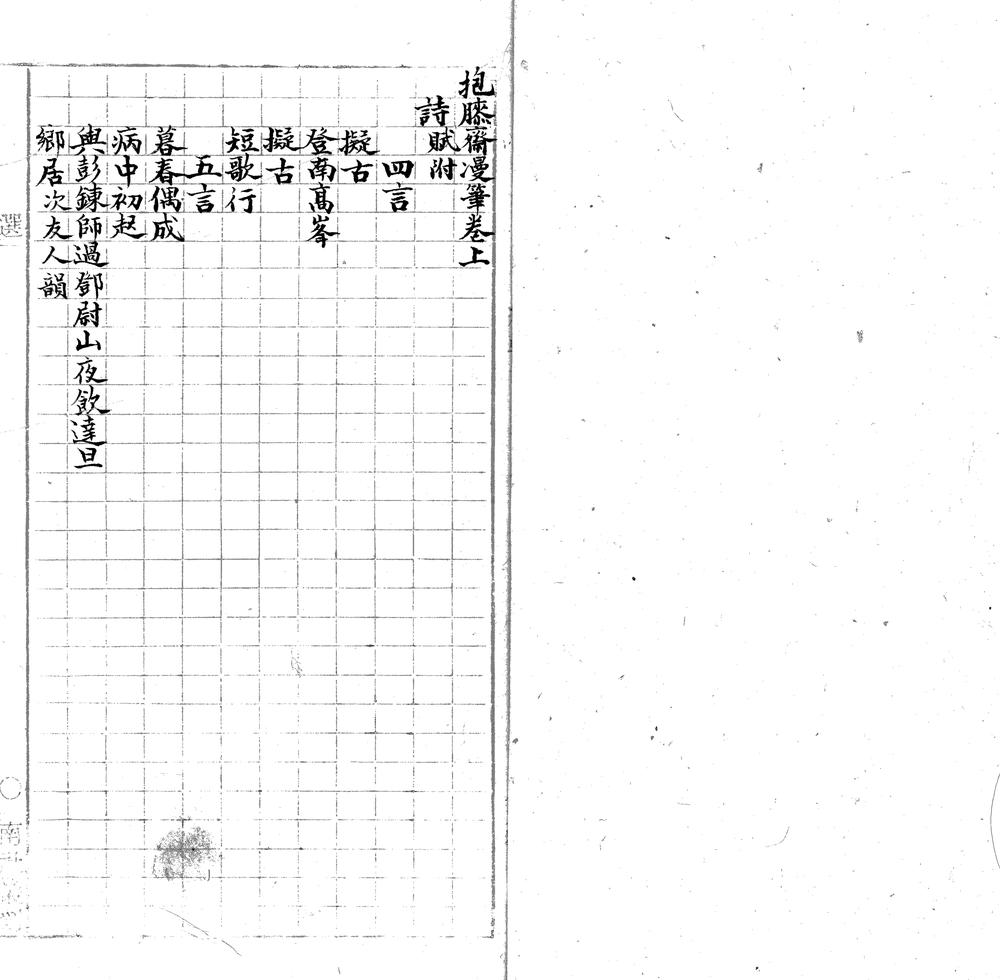 抱膝齋漫筆卷上
詩賦附
四言
擬古
登南高峯
擬古
短歌行
五言
暮春偶成
病中初起
與彭鍊師過鄧尉山夜飲達旦
鄉居次友人韻
選
南